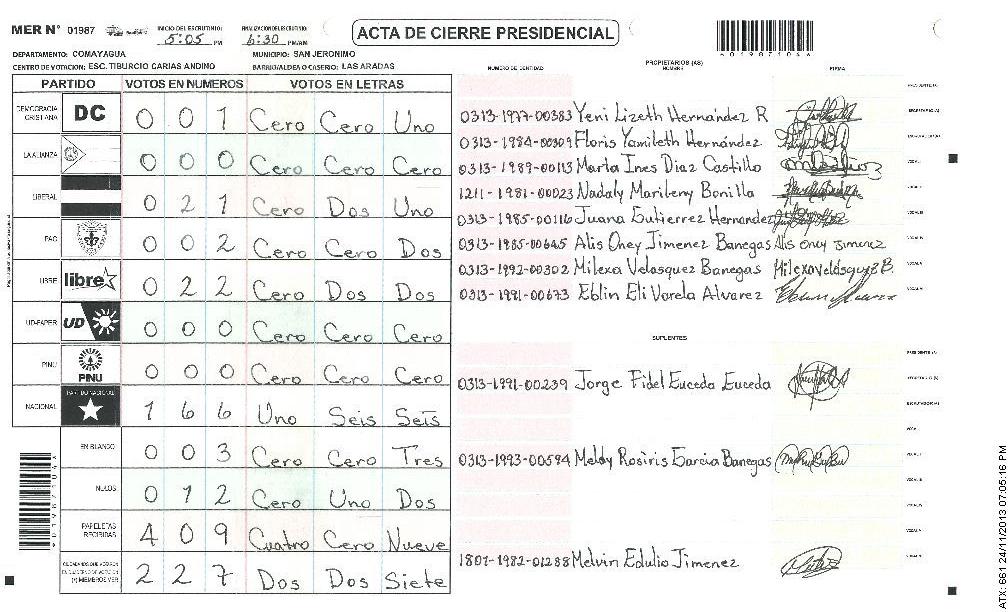 MER N° 01987
INICIO DEL ESCRUTINIO: 5:05 PM
FINALIZACION DEL ESCRUTINIO: 6:30 PM/AM
ACTA DE CIERRE PRESIDENCIAL
DEPARTAMENTO: COMAYAGUA
MUNICIPIO: SAN JERONIMO
CENTRO DE VOTACION: ESC. TIBURCIO CARIAS ANDINO
BARRIO/ALDEA O CASERIO: LAS ARADAS
PARTIDO VOTOS EN NUMEROS VOTOS EN LETRAS
DEMOCRACIA CRISTIANA DC 0 0 1 Cero Cero Uno
LA ALIANZA 0 0 0 Cero Cero Cero
LIBERAL 0 2 1 Cero Dos Uno
PAC 0 0 2 Cero Cero Dos
LIBRE libre 0 2 2 Cero Dos Dos
UD-FAPER UD 0 0 0 Cero Cero Cero
PINU PINU 0 0 0 Cero Cero Cero
NACIONAL PARTIDO NACIONAL 1 6 6 Uno Seis Seis
EN BLANCO 0 0 3 Cero Cero Tres
NULOS 0 1 2 Cero Uno Dos
PAPELETAS RECIBIDAS 4 0 9 Cuatro Cero Nueve
2 2 7 Dos Dos Siete
PROPIETARIOS (AS)
NUMERO DE IDENTIDAD NOMBRE FIRMA
0313-1977-00383 Yeni Lizeth Hernández R
0313-1984-00309 Floris Yamileth Hernández
0313-1989-00113 Marta Ines Diaz Castillo
1211-1981-00023 Nadaly Marileny Bonilla
0313-1985-00116 Juana Gutierrez Hernandez
0313-1985-00645 Alis Oney Jimenez Banegas Alis oney Jimenez
0313-1992-00302 Milexa Velasquez Banegas Milexa Velásquez B.
0313-1991-00673 Eblin Eli Varela Alvarez
SUPLENTES
0313-1991-00239 Jorge Fidel Euceda Euceda
0313-1993-00594 Meldy Rosiris Garcia Banegas
1801-1982-01288 Melvin Edulio Jimenez
ATX: 661 24/11/2013 07:05:16 PM